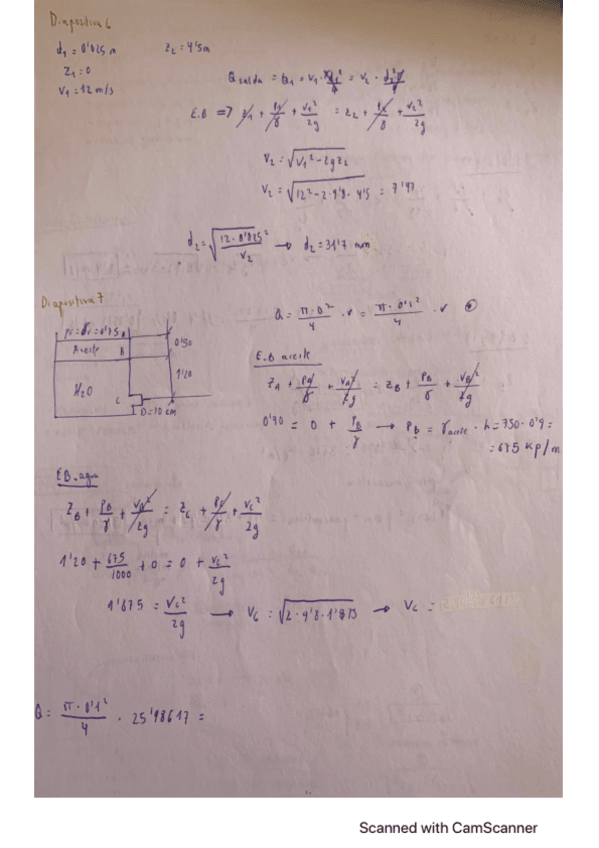 Diapositiva 6
d₁ = 0'025 m    z₂ = 4'5m
z₁ = 0
v₁ = 12 m/s
Q salida = Q₁ = v₁ · π d₁²/4 = v₂ · d₂² π/4
E.B => z₁ + P₁/γ + v₁²/2g = z₂ + P₂/γ + v₂²/2g
v₂ = √(v₁² - 2gz₂)
v₂ = √(12² - 2·9'8·4'5) = 7'47
d₂ = √(12·0'025²/v₂) → d₂ = 31'7 mm
Diapositiva 7
Q = π·D²/4 · v = π·0'1²/4 · v
A
Aceite B 0'90
1'20
H₂O
C
D=10 cm
E.B aceite
z_A + P_A/γ + v_A²/2g = z_B + P_B/γ + v_B²/2g
0'90 = 0 + P_B/γ → P_B = γ aceite · h = 750 · 0'9 =
= 675 Kp/m
EB. agua
z_B + P_B/γ + v_B²/2g = z_C + P_C/γ + v_C²/2g
1'20 + 675/1000 + 0 = 0 + v_C²/2g
1'875 = v_C²/2g → v_C = √(2·9'8·1'875) → v_C =
Q = π·0'1²/4 · 25'98617 =
Scanned with CamScanner